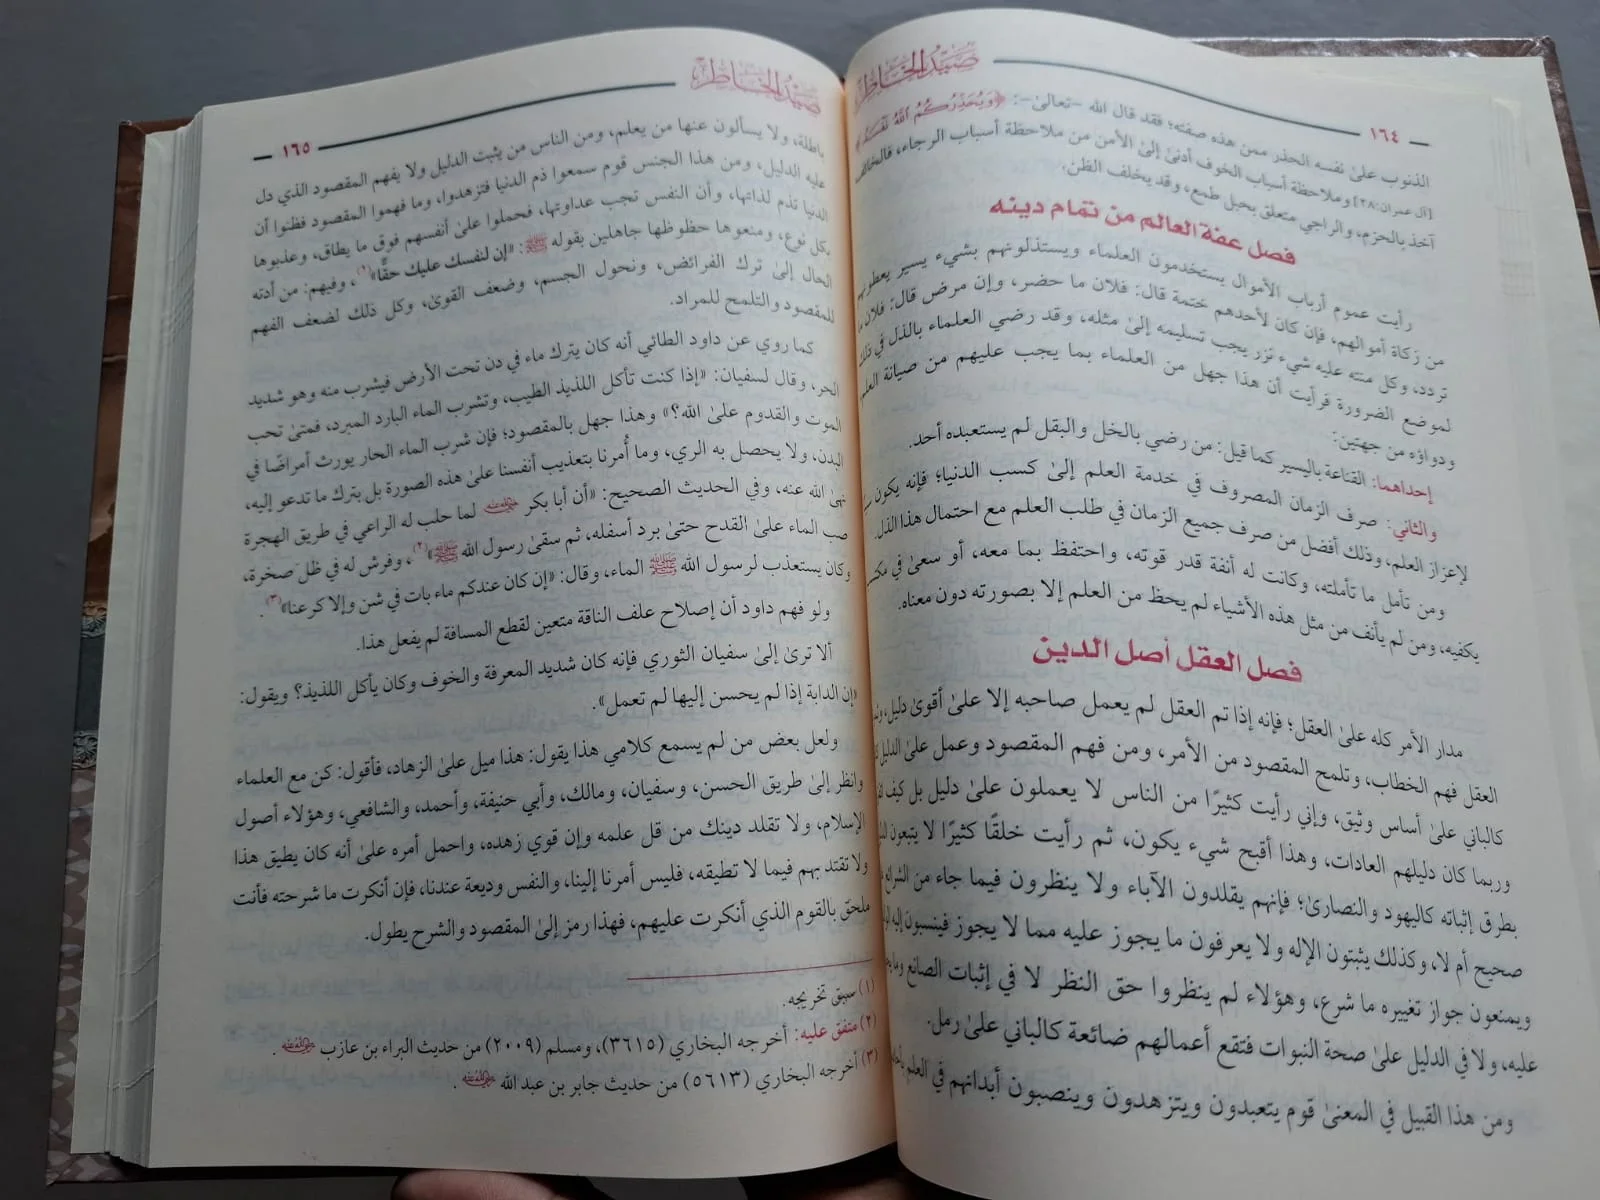 ١٦٤
صيد الخاطر
الذنوب على نفسه الحذر ممن هذه صفته؛ فقد قال الله -تعالى-: ﴿وَيُحَذِّرُكُمُ اللَّهُ نَفْسَهُ﴾
[آل عمران:٢٨] وملاحظة أسباب الخوف أدنى إلى الأمن من ملاحظة أسباب الرجاء، فالخائف
آخذ بالحزم، والراجي متعلق بحبل طمع، وقد يخلف الظن.
فصل عفة العالم من تمام دينه
رأيت عموم أرباب الأموال يستخدمون العلماء ويستذلونهم بشيء يسير يعطونهم
من زكاة أموالهم، فإن كان لأحدهم ختمة قال: فلان ما حضر، وإن مرض قال: فلان ما
تردد، وكل منته عليه شيء نزر يجب تسليمه إلى مثله، وقد رضي العلماء بالذل في ذلك
لموضع الضرورة فرأيت أن هذا جهل من العلماء بما يجب عليهم من صيانة العلم
ودواؤه من جهتين:
إحداهما: القناعة باليسير كما قيل: من رضي بالخل والبقل لم يستعبده أحد.
والثاني: صرف الزمان المصروف في خدمة العلم إلى كسب الدنيا؛ فإنه يكون
لإعزاز العلم، وذلك أفضل من صرف جميع الزمان في طلب العلم مع احتمال هذا الذل.
ومن تأمل ما تأملته، وكانت له أنفة قدر قوته، واحتفظ بما معه، أو سعى في
يكفيه، ومن لم يأنف من مثل هذه الأشياء لم يحظ من العلم إلا بصورته دون معناه.
فصل العقل أصل الدين
مدار الأمر كله على العقل؛ فإنه إذا تم العقل لم يعمل صاحبه إلا على أقوى دليل،
العقل فهم الخطاب، وتلمح المقصود من الأمر، ومن فهم المقصود وعمل على الدليل
كالباني على أساس وثيق، وإني رأيت كثيرًا من الناس لا يعملون على دليل بل كيف
وربما كان دليلهم العادات، وهذا أقبح شيء يكون، ثم رأيت خلقًا كثيرًا لا يتبعون
بطرق إثباته كاليهود والنصارى؛ فإنهم يقلدون الآباء ولا ينظرون فيما جاء من الشرائع
صحيح أم لا، وكذلك يثبتون الإله ولا يعرفون ما يجوز عليه مما لا يجوز فينسبون إليه
ويمنعون جواز تغييره ما شرع، وهؤلاء لم ينظروا حق النظر لا في إثبات الصانع
عليه، ولا في الدليل على صحة النبوات فتقع أعمالهم ضائعة كالباني على رمل.
ومن هذا القبيل في المعنى قوم يتعبدون ويتزهدون وينصبون أبدانهم في العلم
صيد الخاطر
١٦٥
باطلة، ولا يسألون عنها من يعلم، ومن الناس من يثبت الدليل ولا يفهم المقصود الذي دل
عليه الدليل، ومن هذا الجنس قوم سمعوا ذم الدنيا فتزهدوا، وما فهموا المقصود فظنوا أن
الدنيا تذم لذاتها، وأن النفس تجب عداوتها، فحملوا على أنفسهم فوق ما يطاق، وعذبوها
بكل نوع، ومنعوها حظوظها جاهلين بقوله ﷺ: «إن لنفسك عليك حقًّا»(١)، وفيهم: من أدته
الحال إلى ترك الفرائض، ونحول الجسم، وضعف القوى، وكل ذلك لضعف الفهم
للمقصود والتلمح للمراد.
كما روي عن داود الطائي أنه كان يترك ماء في دن تحت الأرض فيشرب منه وهو شديد
الحر، وقال لسفيان: «إذا كنت تأكل اللذيذ الطيب، وتشرب الماء البارد المبرد، فمتى تحب
الموت والقدوم على الله؟» وهذا جهل بالمقصود؛ فإن شرب الماء الحار يورث أمراضًا في
البدن، ولا يحصل به الري، وما أُمرنا بتعذيب أنفسنا على هذه الصورة بل بترك ما تدعو إليه،
نهى الله عنه، وفي الحديث الصحيح: «أن أبا بكر رضي الله عنه لما حلب له الراعي في طريق الهجرة
صب الماء على القدح حتى برد أسفله، ثم سقى رسول الله ﷺ»(٢)، وفرش له في ظل صخرة،
وكان يستعذب لرسول الله ﷺ الماء، وقال: «إن كان عندكم ماء بات في شن وإلا كرعنا»(٣).
ولو فهم داود أن إصلاح علف الناقة متعين لقطع المسافة لم يفعل هذا.
ألا ترى إلى سفيان الثوري فإنه كان شديد المعرفة والخوف وكان يأكل اللذيذ؟ ويقول:
«إن الدابة إذا لم يحسن إليها لم تعمل».
ولعل بعض من لم يسمع كلامي هذا يقول: هذا ميل على الزهاد، فأقول: كن مع العلماء
وانظر إلى طريق الحسن، وسفيان، ومالك، وأبي حنيفة، وأحمد، والشافعي، وهؤلاء أصول
الإسلام، ولا تقلد دينك من قل علمه وإن قوي زهده، واحمل أمره على أنه كان يطيق هذا
ولا تقتد بهم فيما لا تطيقه، فليس أمرنا إلينا، والنفس وديعة عندنا، فإن أنكرت ما شرحته فأنت
ملحق بالقوم الذي أنكرت عليهم، فهذا رمز إلى المقصود والشرح يطول.
(١) سبق تخريجه.
(٢) متفق عليه: أخرجه البخاري (٣٦١٥)، ومسلم (٢٠٠٩) من حديث البراء بن عازب رضي الله عنه.
(٣) أخرجه البخاري (٥٦١٣) من حديث جابر بن عبد الله رضي الله عنه.